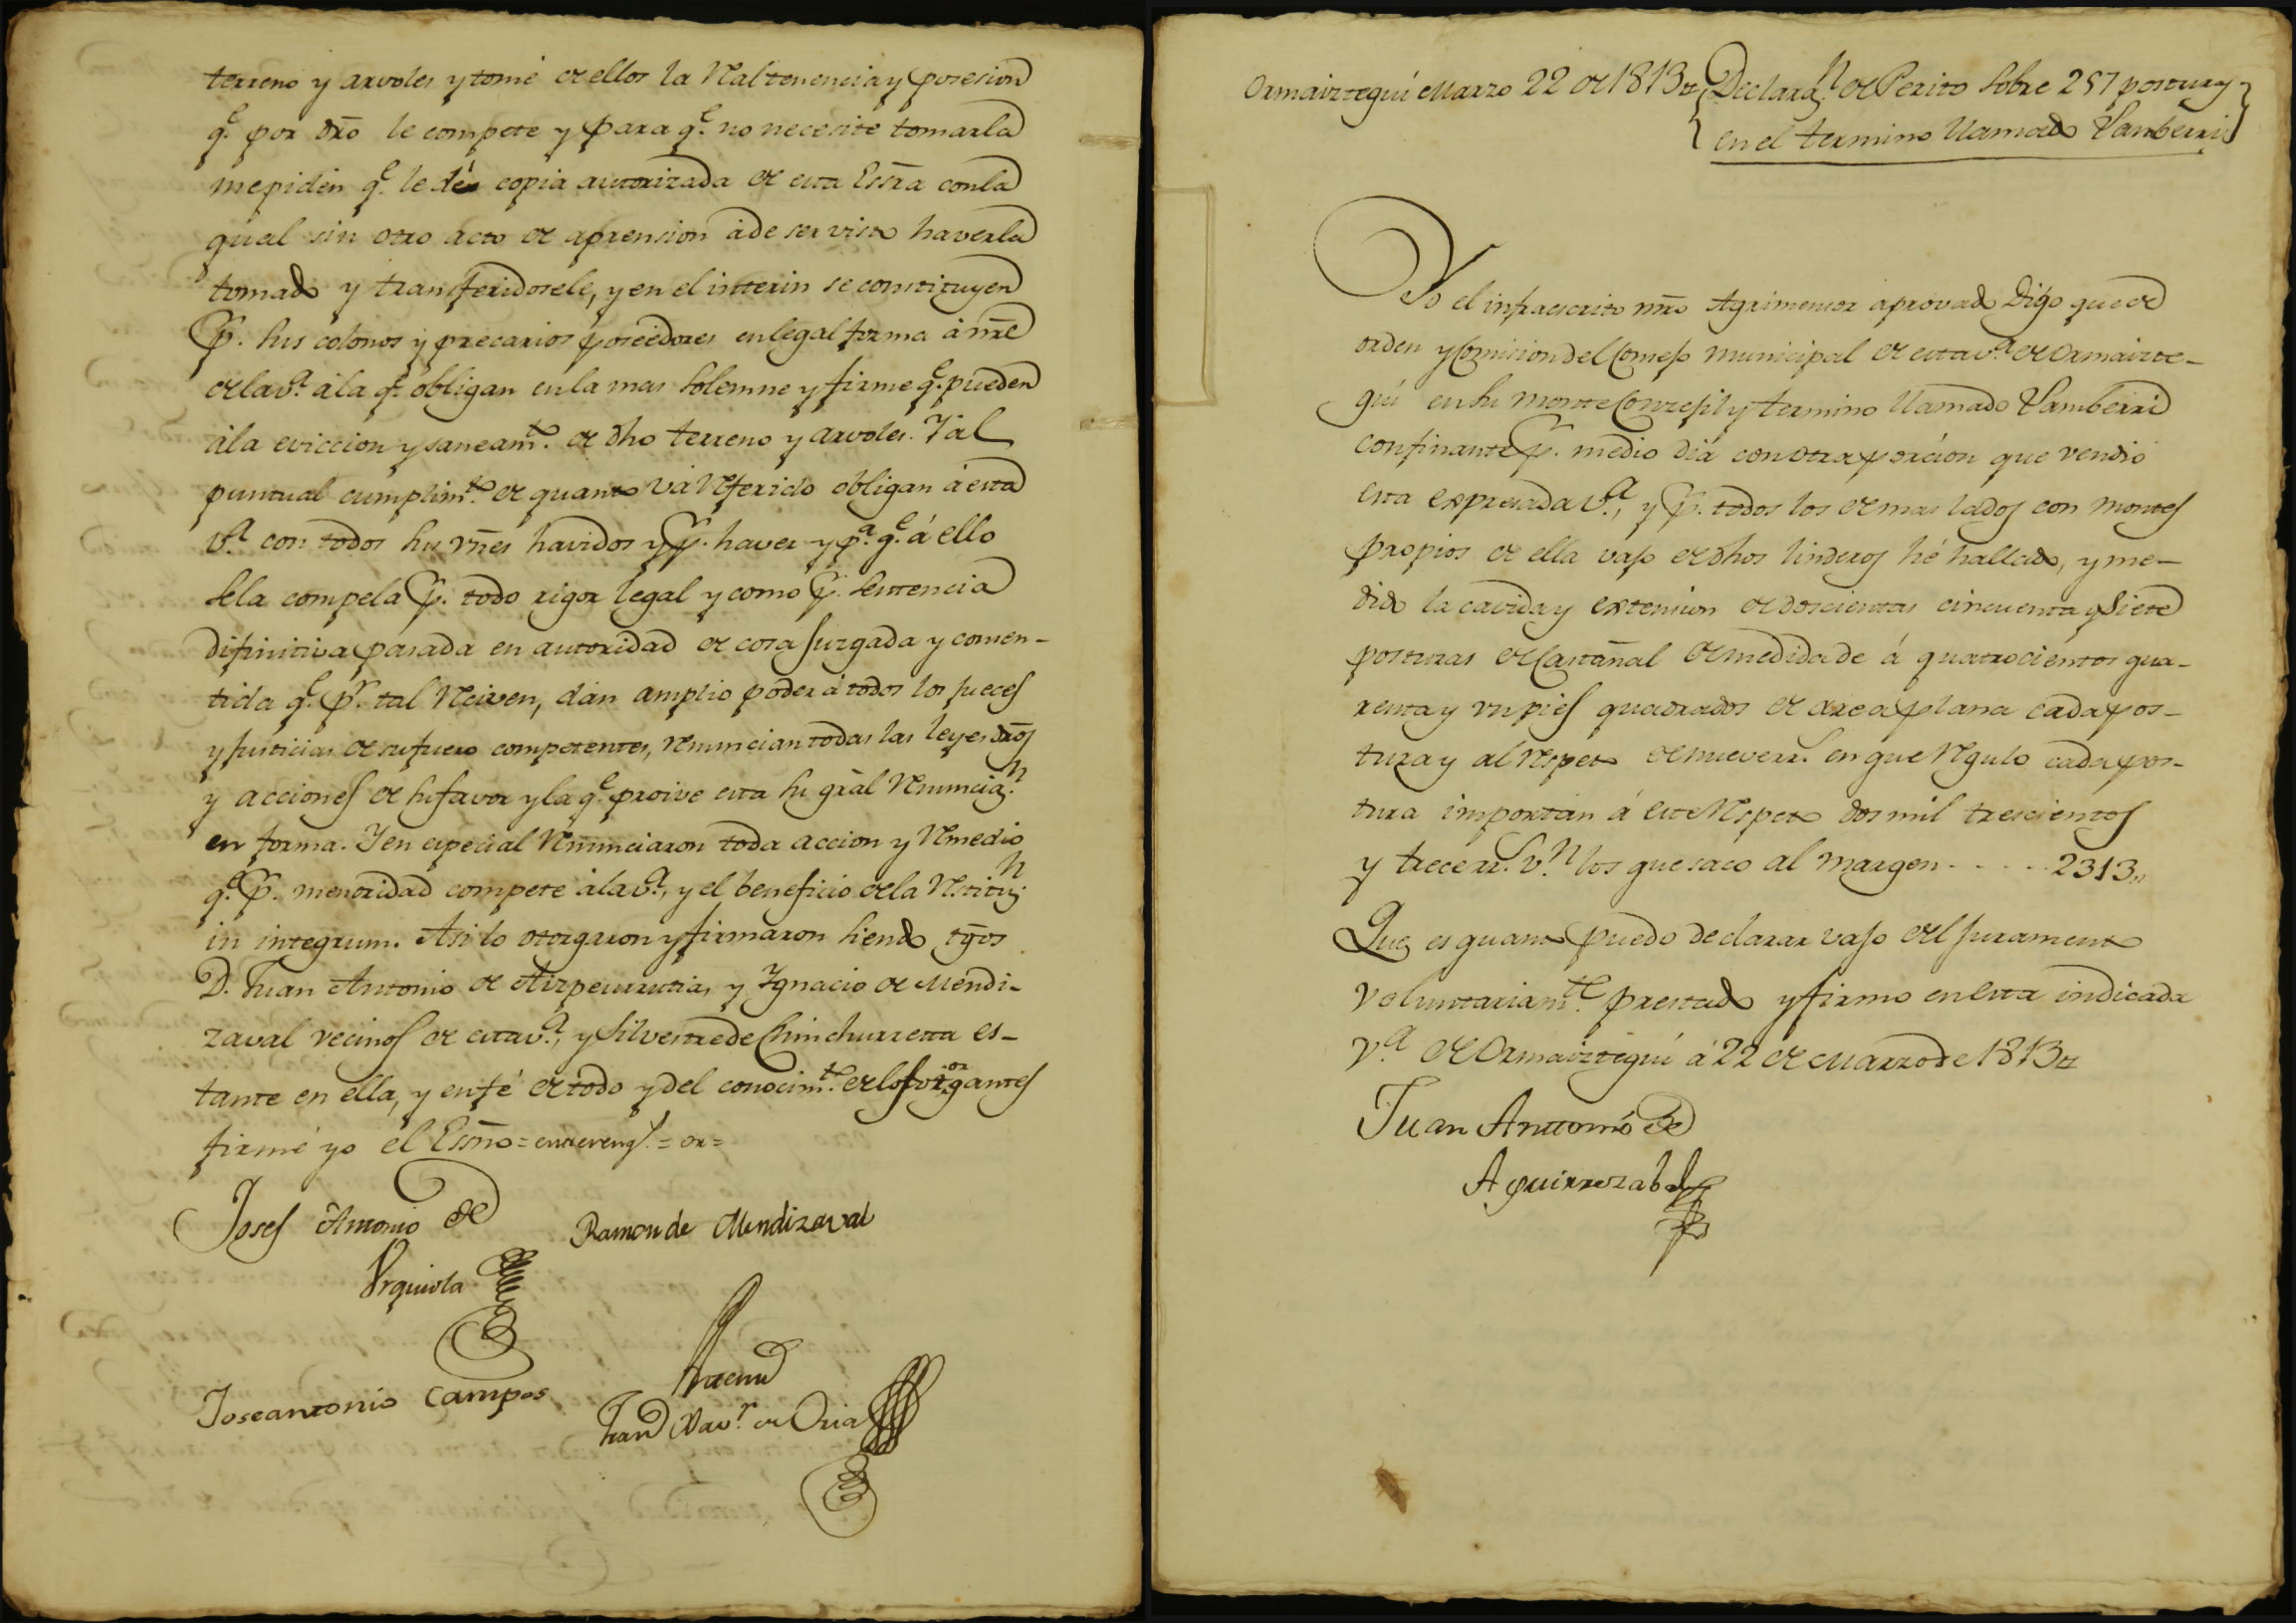 terreno y arvoles y tome de ellos la Ral tenencia y posesion
q.e por dro le compete y para q.e no necesite tomarla
me piden q.e le dé copia autorizada de esta Essra con la
qual sin otro acto de aprension á de ser visto haverla
tomado y transferidosele, y en el interin se constituyen
p.r sus colonos y precarios poseedores en legal forma á nre
de la v.a á la q.e obligan en la mas solemne y firme q.e pueden
á la eviccion y saneam.to de dho terreno y arvoles. Y al
puntual cumplim.to de quanto vá Referido obligan á esta
v.a con todos sus vnes havidos y p.r haver y p.a q.e á ello
se la compela p.r todo rigor legal y como p.r sentencia
difinitiva pasada en autoridad de cosa Juzgada y consen-
tida q.e p.r tal Reciven, dán amplio poder á todos los Jueces
y Justicias de su fuero competentes, Renuncian todas las leyes dros
y acciones de su favor y la q.e proive esta su gral Renuncia.n
en forma. Y en especial Renunciaron toda accion y Remedio
q.e p.r menoridad compete á la v.a, y el beneficio de la Restitu.n
in integrum. Asi lo otorgaron y firmaron siendo tgos
D. Juan Antonio de Aizpeurrutia, y Ygnacio de Mendi-
zaval vecinos de esta v.a, y Silvestre de Chinchurreta es-
tante en ella, y en fé de todo y del conocim.to de los otorgantes
or
firmé yo el Essno = entrereng.s = or =
Josef Antonio de
Urquiola
Ramon de Mendizaval
Joseantonio Campos
Antemi
Juan Xav.r de Oria
Ormaiztegui Marzo 22 de 1813
Declara.n de Perito sobre 257 posturas
en el termino llamado Vamberri
Yo el infraescrito mro Agrimensor aprovado Digo que de
orden y Comision del Consejo municipal de esta v.a de Ormaizte-
gui en su monte Conzejil y termino llamado Vamberri
confinante p.r medio diá con otra porción que vendió
esta expresada v.a, y p.r todos los demas lados con montes
propios de ella vajo de dhos linderos hé hallado, y me-
dido la cavida y extension de doscientas cincuenta y siete
posturas de Castañal de medida de á quatrocientos qua-
renta y un pies quadrados de area plana cada pos-
tura y al Respeto de nueve rr.s en que Regulo cada pos-
tura importan á este Respeto dos mil trescientos
y trece rr.s v.n los que saco al margen - - - - - 2313
Que es quanto puedo declarar vajo del Juramento
voluntariam.te prestado y firmo en esta indicada
v.a de Ormaiztegui á 22 de Marzo de 1813
Juan Antonio de
Aguirrezabal